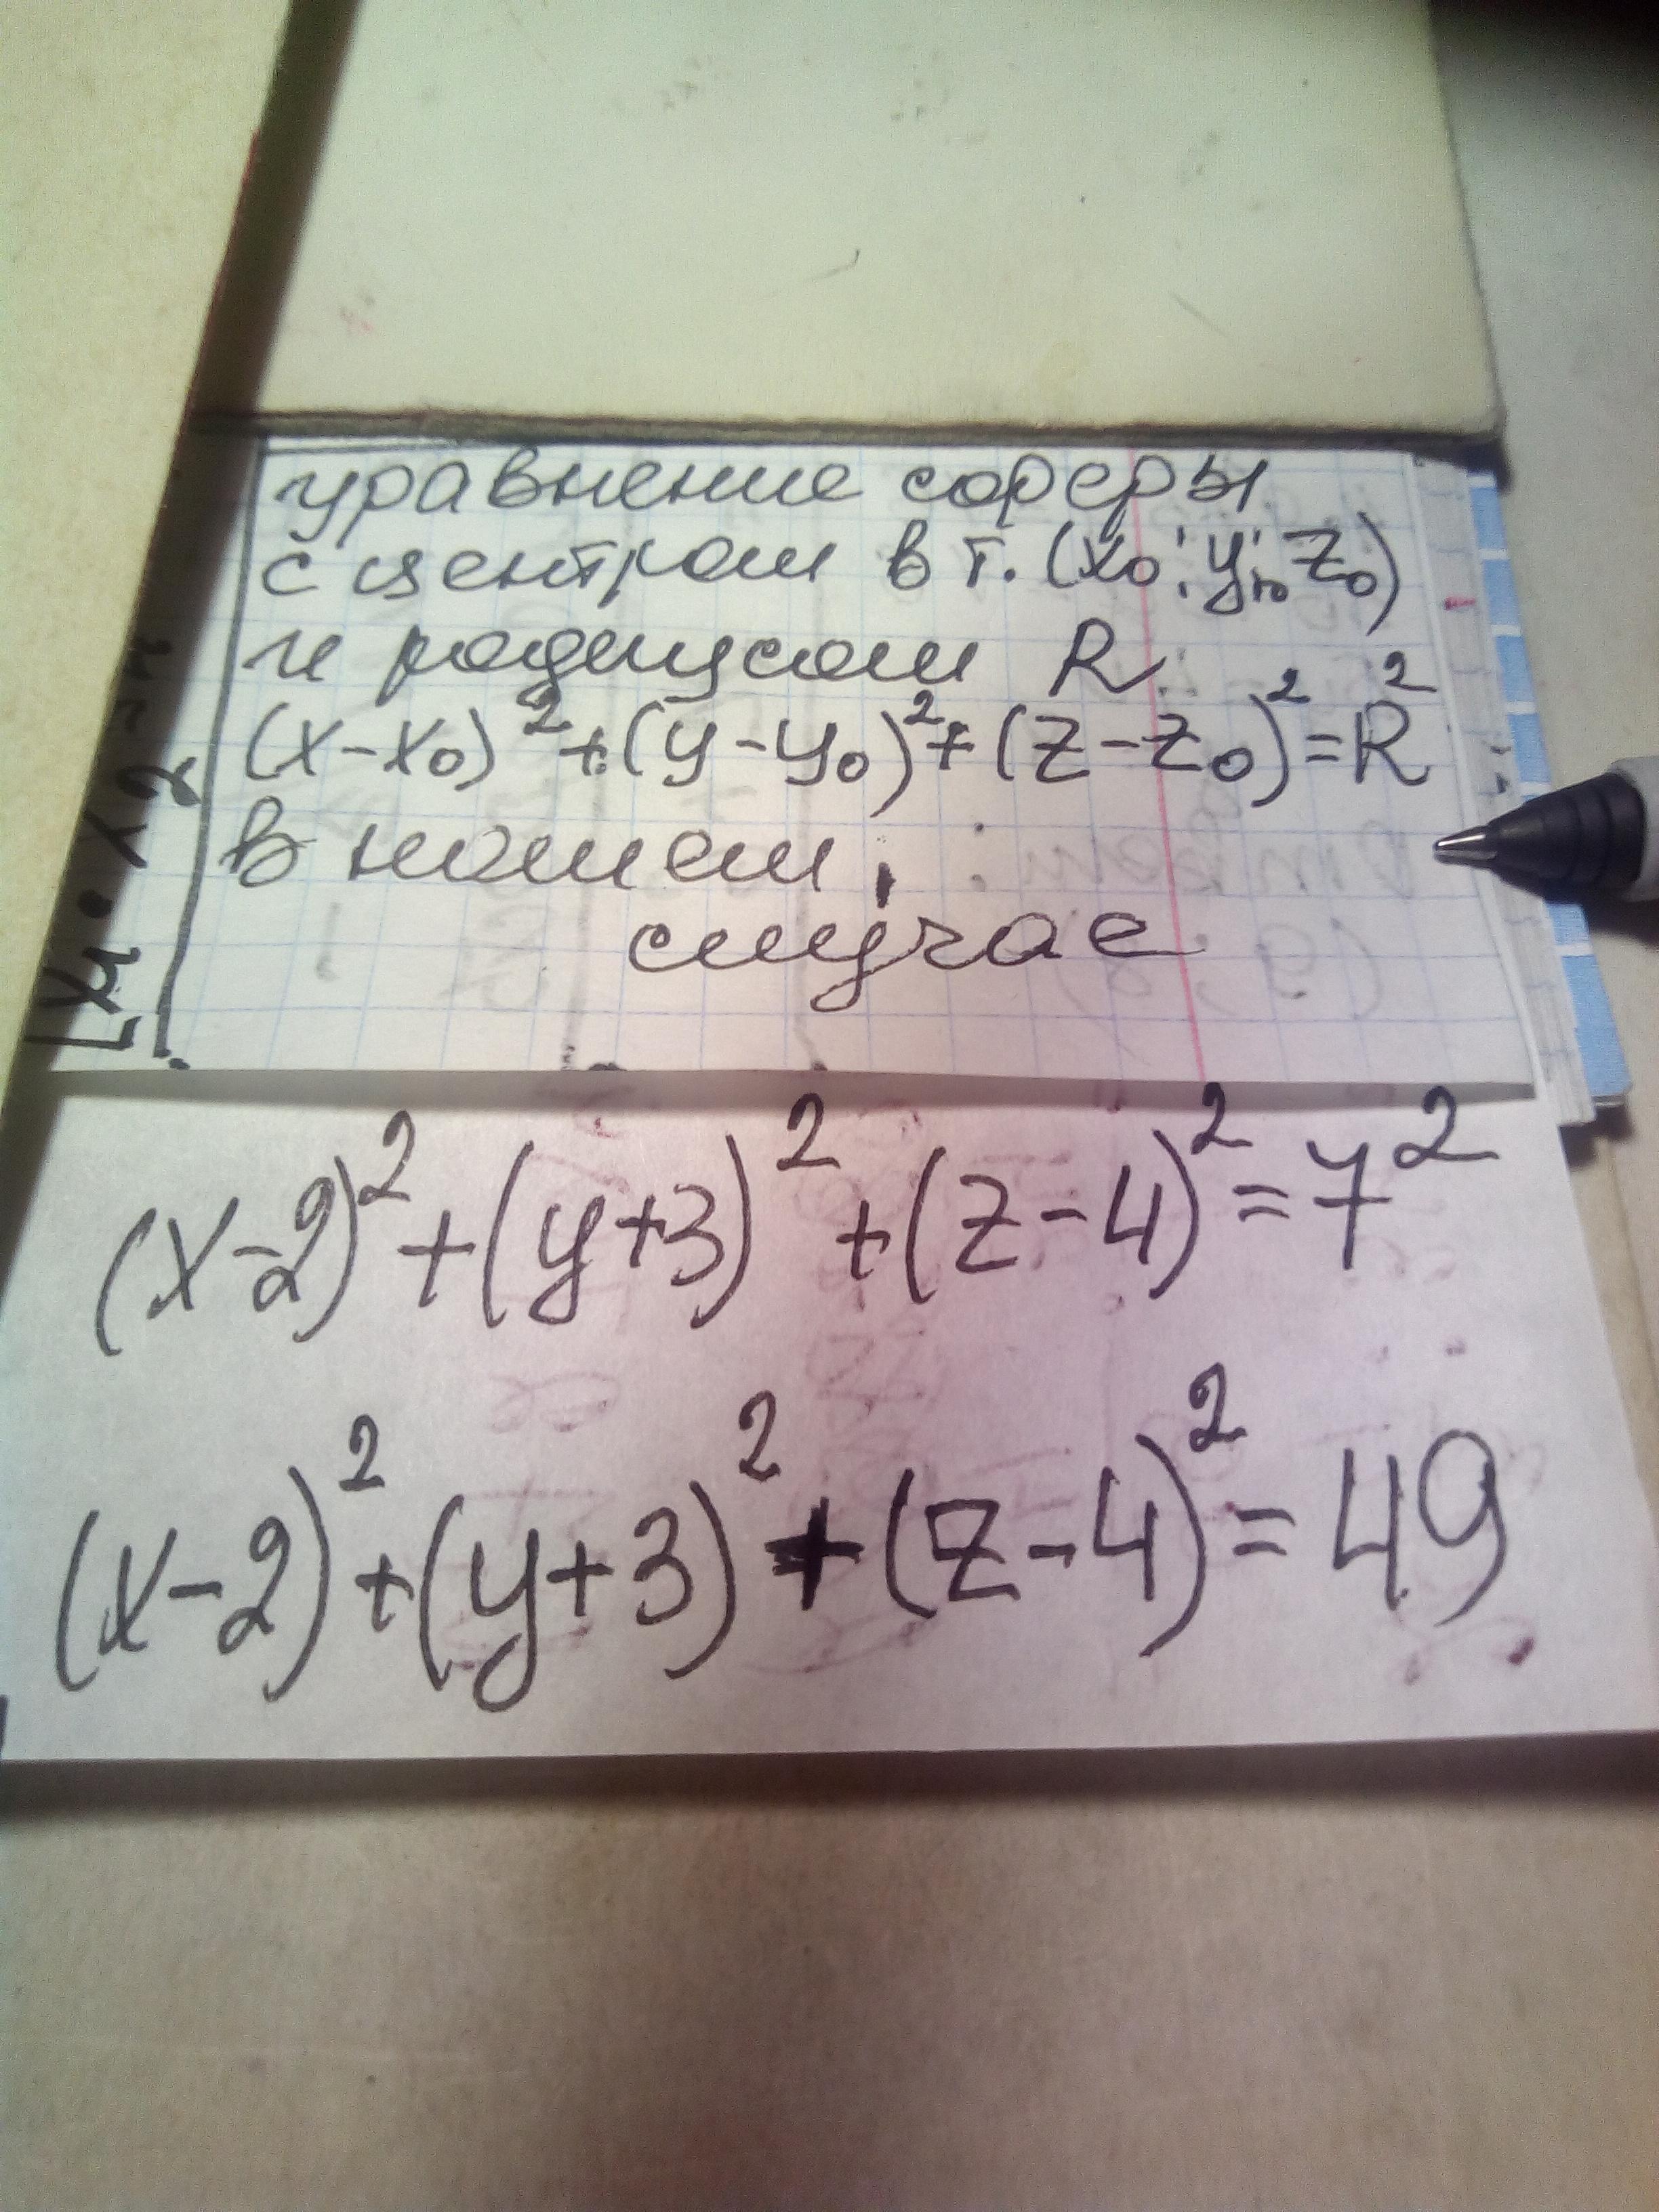 уравнение сферы
с центром в т. (x₀; y₀; z₀)
и радиусом R
(x-x₀)²+(y-y₀)²+(z-z₀)²=R²
в нашем
случае
(x-2)²+(y+3)²+(z-4)²=7²
(x-2)²+(y+3)²+(z-4)²=49